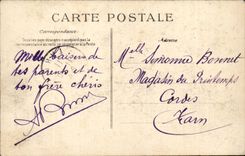 CARTE POSTALE
Correspondance
Adresse
Mille baisers de
tes parents et de
ton frère chéris
Melle Simonne Bonnet
Magasin du Printemps
Cordes
Tarn